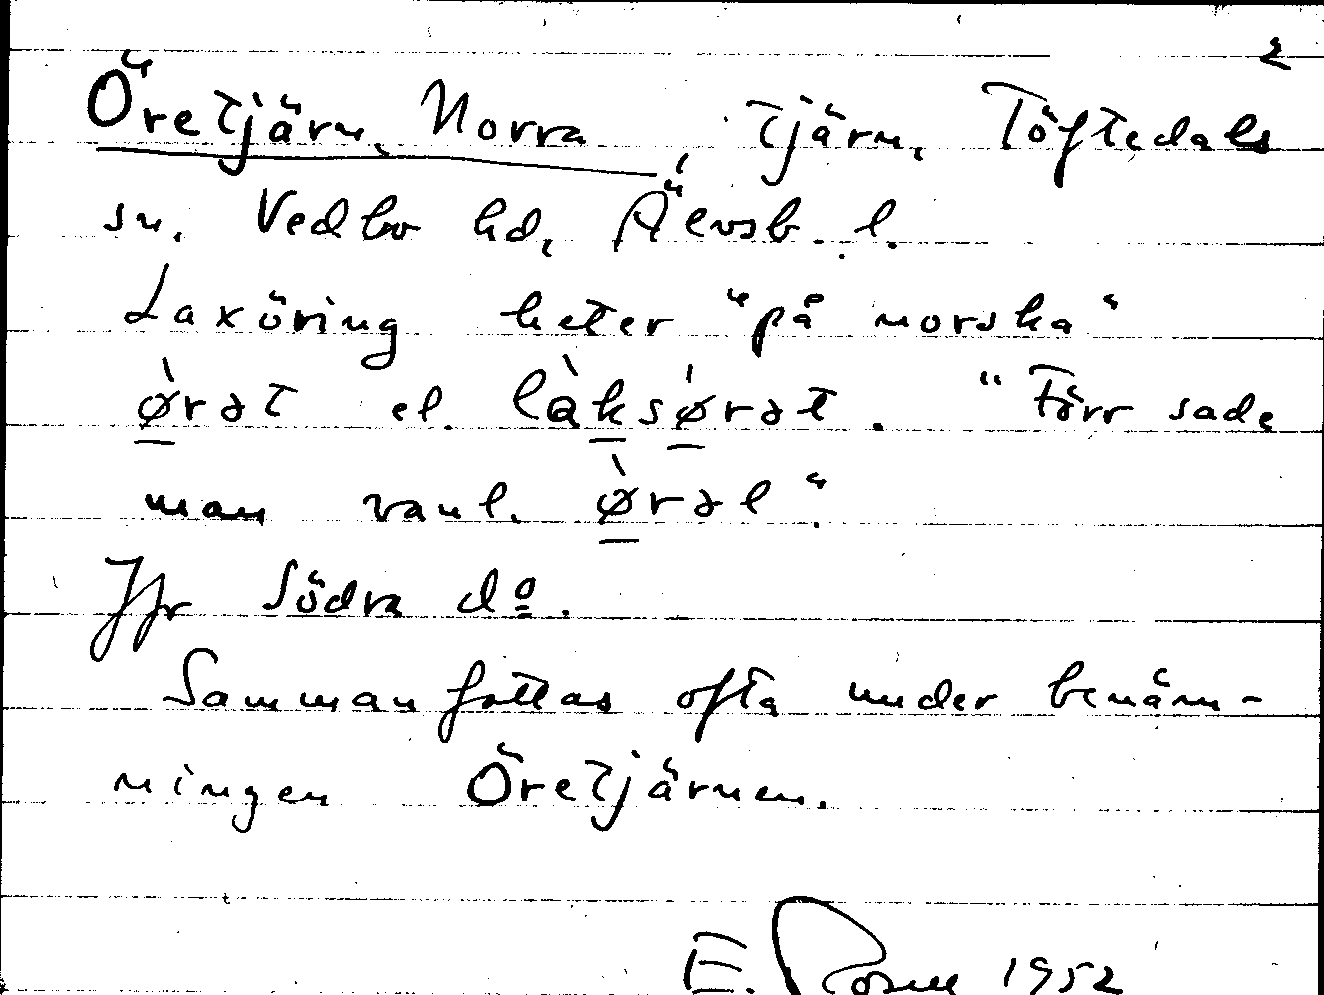 2
Öretjärn, Norra, tjärn, Töftedals
sn. Vedbo hd, Älvsb. l.
Laxöring heter "på norska"
ø̀rət el. làksǿrət. "Förr sade
man vanl. ø̀rəl".
Jfr Södra do.
Sammanfattas ofta under benäm-
ningen Öretjärnen.
E. Rosell 1952